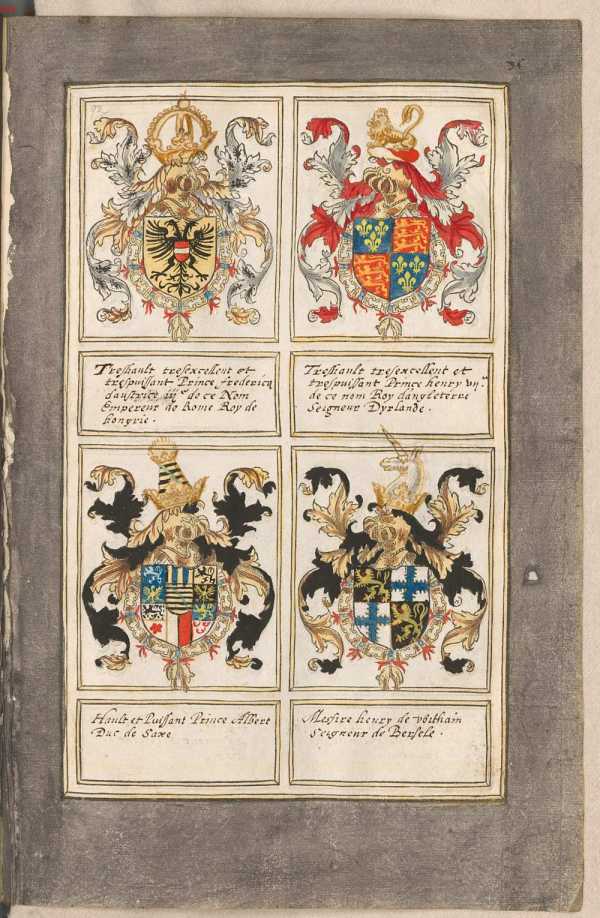 36
Treshault tresexcellent et
trespuissant Prince fredericq
daustrice iij.e de ce Nom
Empereur de Rome Roy de
hongrie.
Treshault tresexcellent et
trespuissant Prince henry vij.e
de ce nom Roy dangleterre
Seigneur Dyrlande.
Hault et Puissant Prince Albert
Duc de Saxe
Messire henry de voithain
Seigneur de Bersele.